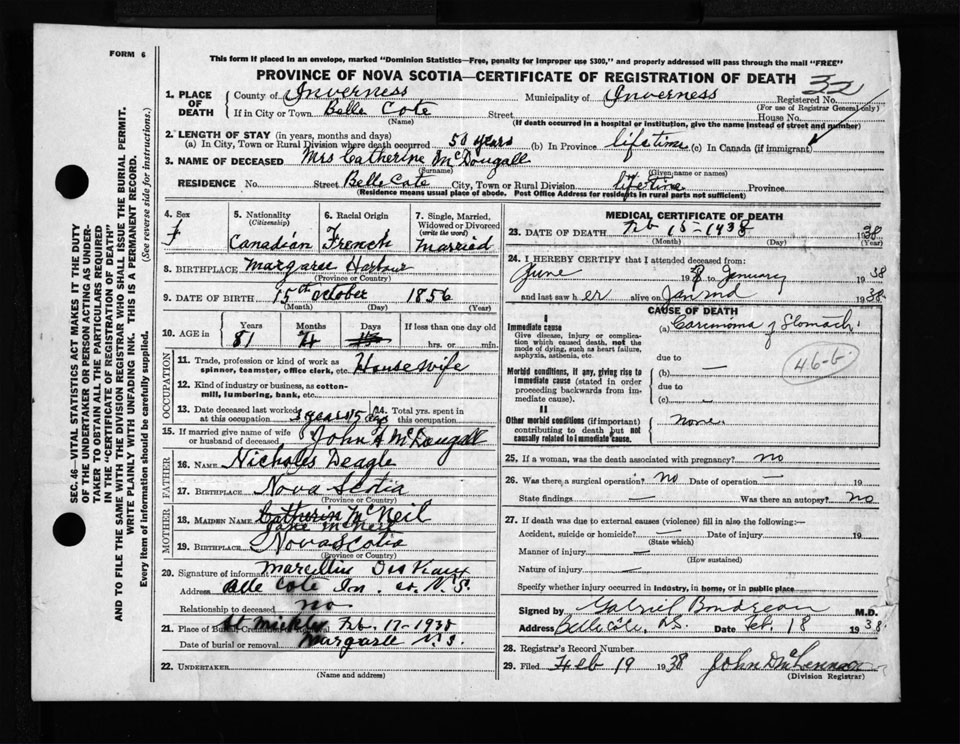 FORM 6
This form if placed in an envelope, marked "Dominion Statistics—Free, penalty for improper use $300," and properly addressed will pass through the mail "FREE"
PROVINCE OF NOVA SCOTIA—CERTIFICATE OF REGISTRATION OF DEATH
32
1. PLACE OF DEATH
County of Inverness Municipality of Inverness Registered No.
(For use of Registrar General only)
If in City or Town Belle Cote Street House No.
(Name) (If death occurred in a hospital or institution, give the name instead of street and number)
2. LENGTH OF STAY (in years, months and days)
(a) In City, Town or Rural Division where death occurred 50 years (b) In Province lifetime (c) In Canada (if immigrant)
3. NAME OF DECEASED Mrs Catherine McDougall
(Surname) (Given name or names)
RESIDENCE No. Street Belle Cote City, Town or Rural Division lifetime Province
(Residence means usual place of abode. Post Office Address for residents in rural parts not sufficient)
SEC. 46—VITAL STATISTICS ACT MAKES IT THE DUTY
OF THE UNDERTAKER OR PERSON ACTING AS UNDER-
TAKER TO OBTAIN ALL THE PARTICULARS REQUIRED
IN THE "CERTIFICATE OF REGISTRATION OF DEATH"
AND TO FILE THE SAME WITH THE DIVISION REGISTRAR WHO SHALL ISSUE THE BURIAL PERMIT.
WRITE PLAINLY WITH UNFADING INK. THIS IS A PERMANENT RECORD.
Every item of information should be carefully supplied. (See reverse side for instructions.)
4. Sex f
5. Nationality (Citizenship) Canadian
6. Racial Origin French
7. Single, Married, Widowed or Divorced (write the word) Married
8. BIRTHPLACE Margaree Harbour
(Province or Country)
9. DATE OF BIRTH 15th October 1856
(Month) (Day) (Year)
10. AGE in Years Months Days If less than one day old
81 4 hrs. or min.
OCCUPATION
11. Trade, profession or kind of work as spinner, teamster, office clerk, etc. Housewife
12. Kind of industry or business, as cotton-mill, lumbering, bank, etc.
13. Date deceased last worked at this occupation 3 years 15 days 14. Total yrs. spent in this occupation
15. If married give name of wife or husband of deceased John A McDougall
FATHER
16. NAME Nicholas Deagle
17. BIRTHPLACE Nova Scotia
(Province or Country)
MOTHER
18. MAIDEN NAME Catherin McNeil
Jane McNeil
19. BIRTHPLACE Nova Scotia
(Province or Country)
20. Signature of informant Marcellin
Address Belle Cote Inv. co. N.S.
Relationship to deceased no
21. Place of Burial, Cremation or Removal Feb. 17-1938
Date of burial or removal Margaree N.S.
22. UNDERTAKER
(Name and address)
MEDICAL CERTIFICATE OF DEATH
23. DATE OF DEATH Feb 15-1938 1938
(Month) (Day) (Year)
24. I HEREBY CERTIFY that I attended deceased from:
June 19 to January 1938
and last saw her alive on Jan 1938
CAUSE OF DEATH
I
Immediate cause (a) Carcinoma of Stomach
Give disease, injury or complication which caused death, not the mode of dying, such as heart failure, asphyxia, asthenia, etc.
due to
46-b
Morbid conditions, if any, giving rise to immediate cause (stated in order proceeding backwards from immediate cause).
(b) —
due to
(c) —
II
Other morbid conditions (if important) contributing to death but not causally related to immediate cause. none
25. If a woman, was the death associated with pregnancy? no
26. Was there a surgical operation? no Date of operation —
State findings — Was there an autopsy? no
27. If death was due to external causes (violence) fill in also the following:—
Accident, suicide or homicide? — Date of injury 19
(State which)
Manner of injury —
(How sustained)
Nature of injury —
Specify whether injury occurred in industry, in home, or in public place
Signed by Gabriel Boudreau M.D.
Address Belle Cote, N.S. Date Feb. 18 1938
28. Registrar's Record Number
29. Filed Feb 19 1938 John D McLennan
(Division Registrar)